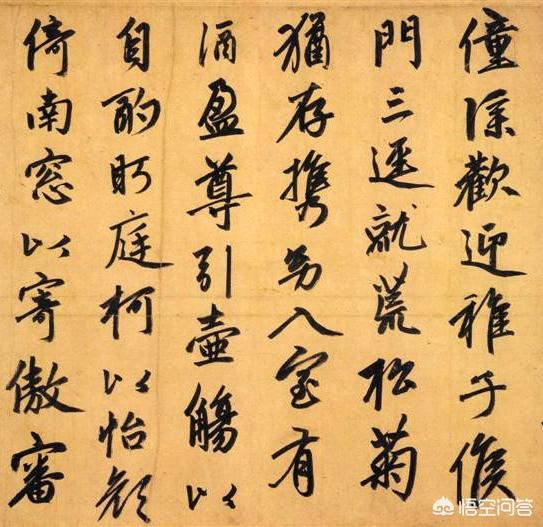 僮僕歡迎稚子候
門三逕就荒松菊
猶存携幼入室有
酒盈尊引壺觴以
自酌眄庭柯以怡顔
倚南窓以寄傲審
悟空问答